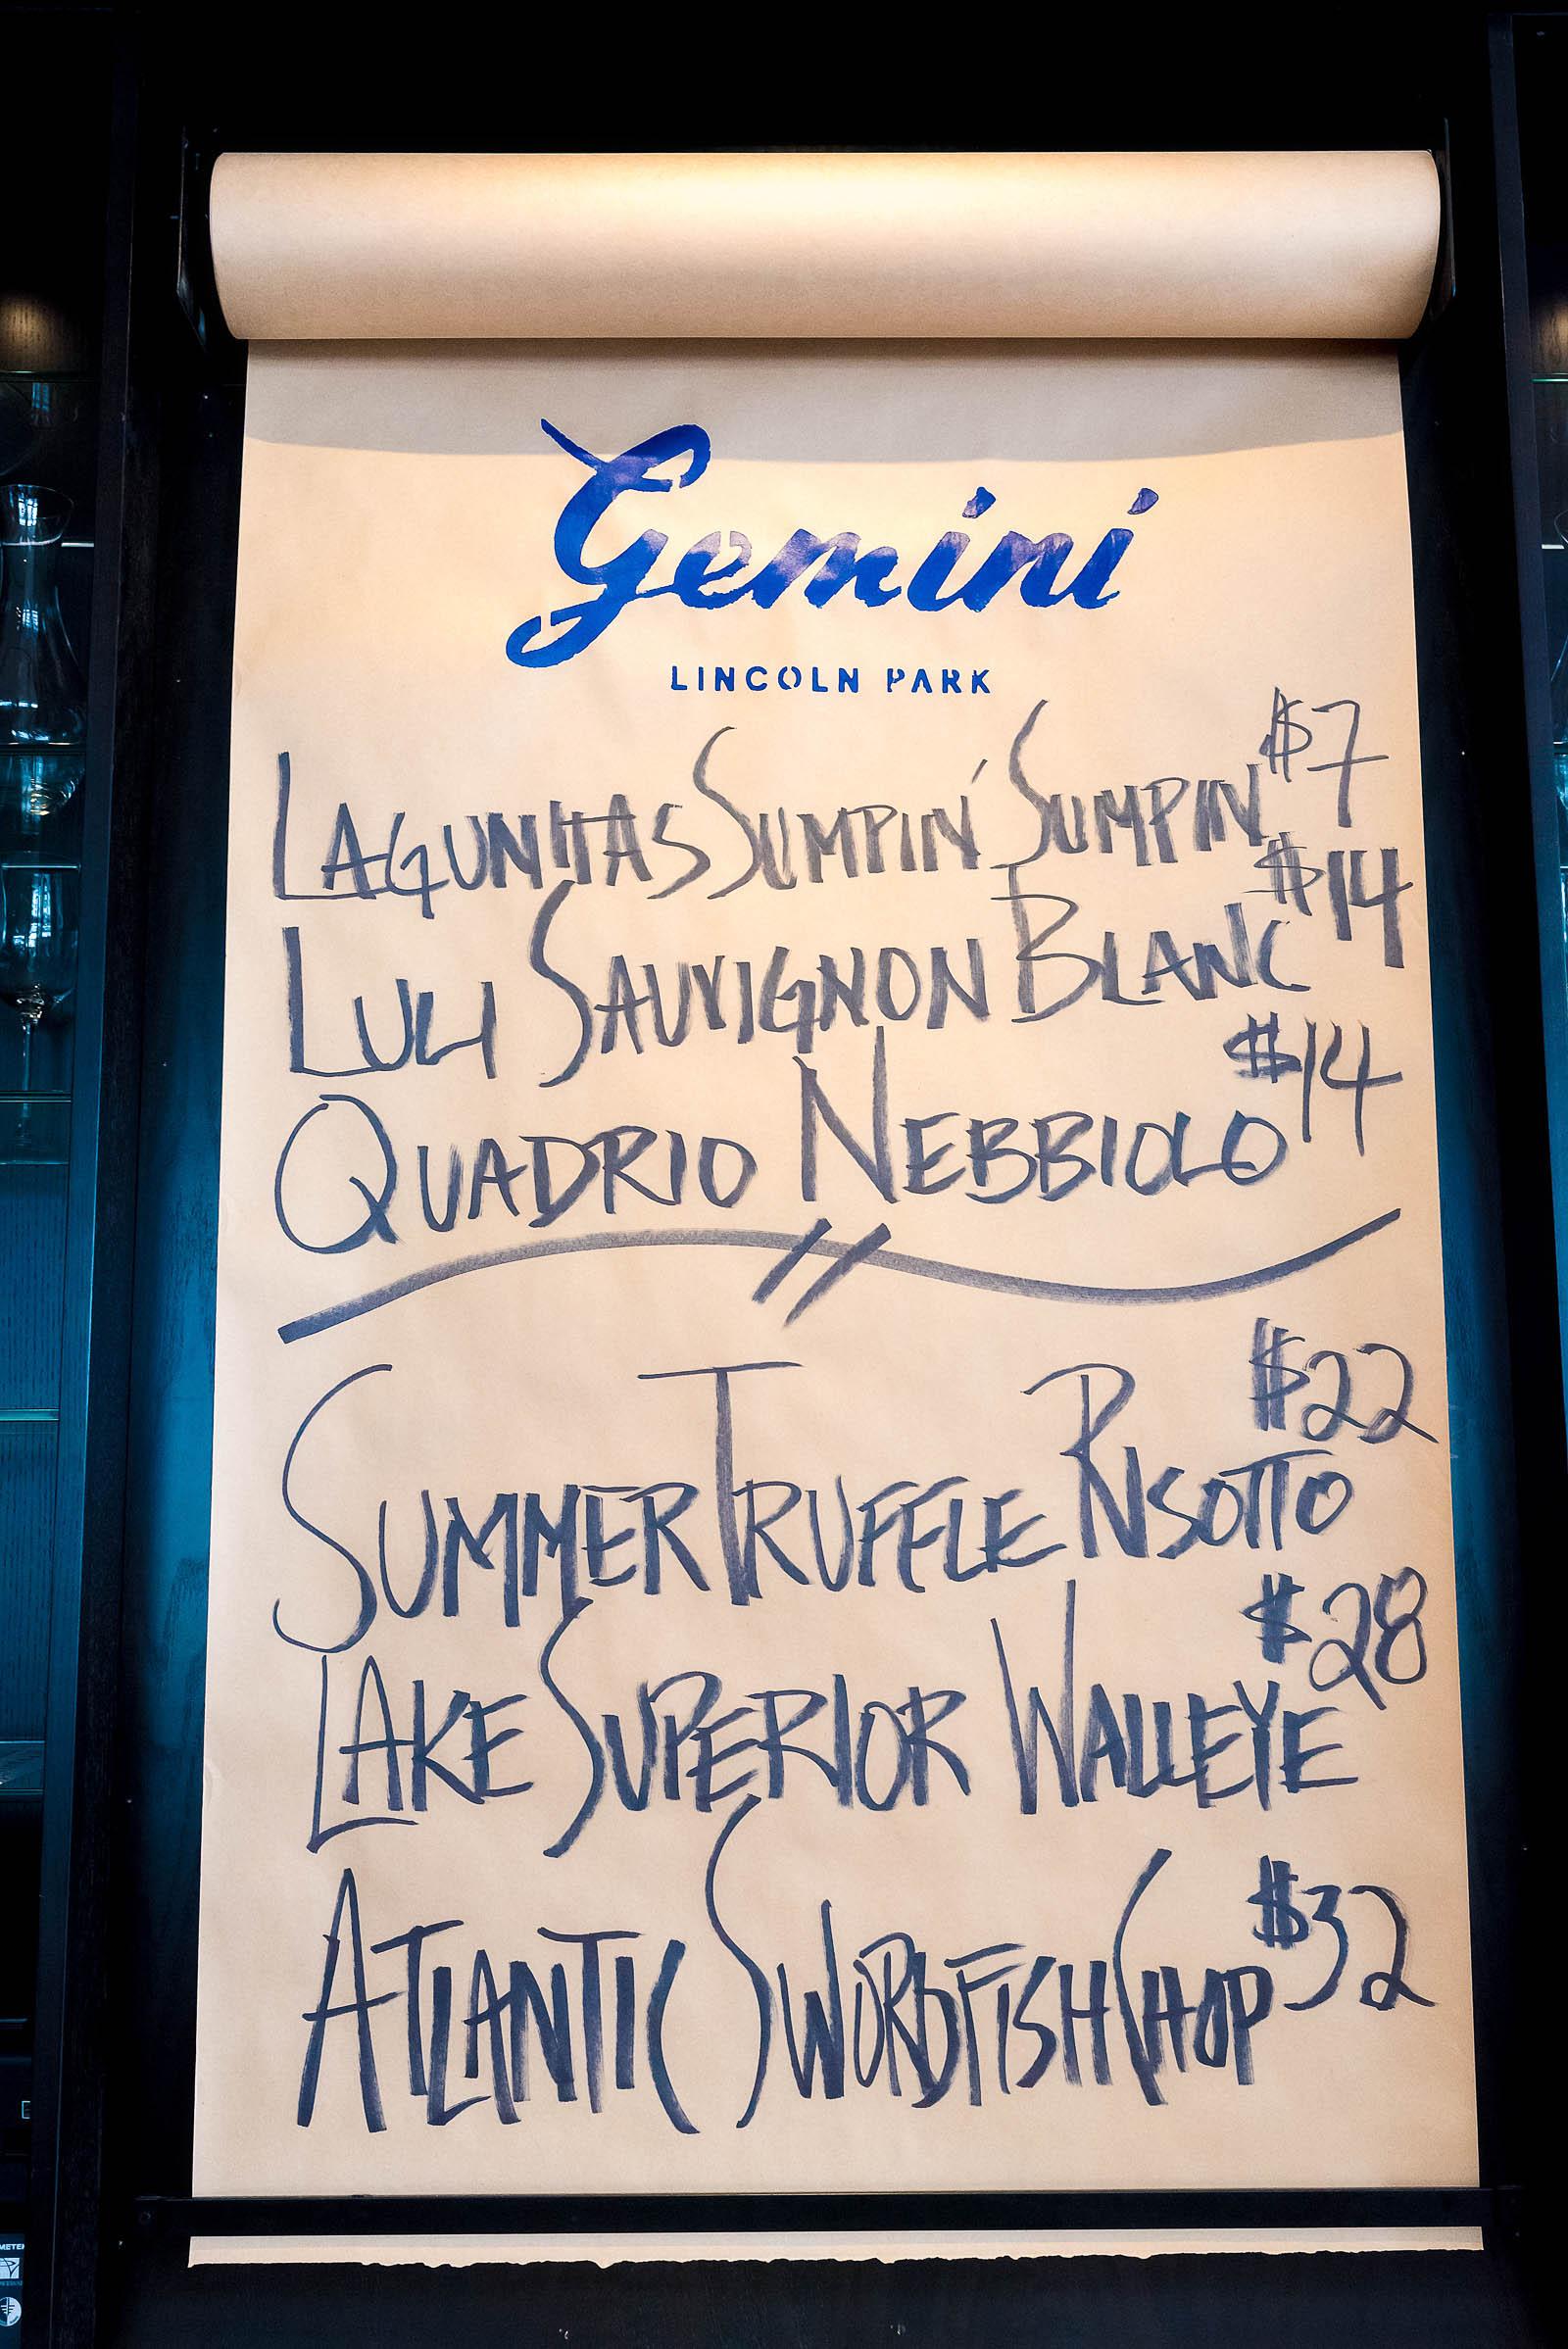 Gemini
LINCOLN PARK
LAGUNITAS SUMPIN' SUMPIN $7
LULI SAUVIGNON BLANC $14
QUADRIO NEBBIOLO $14
SUMMER TRUFFLE RISOTTO $22
LAKE SUPERIOR WALLEYE $28
ATLANTIC SWORDFISH CHOP $32